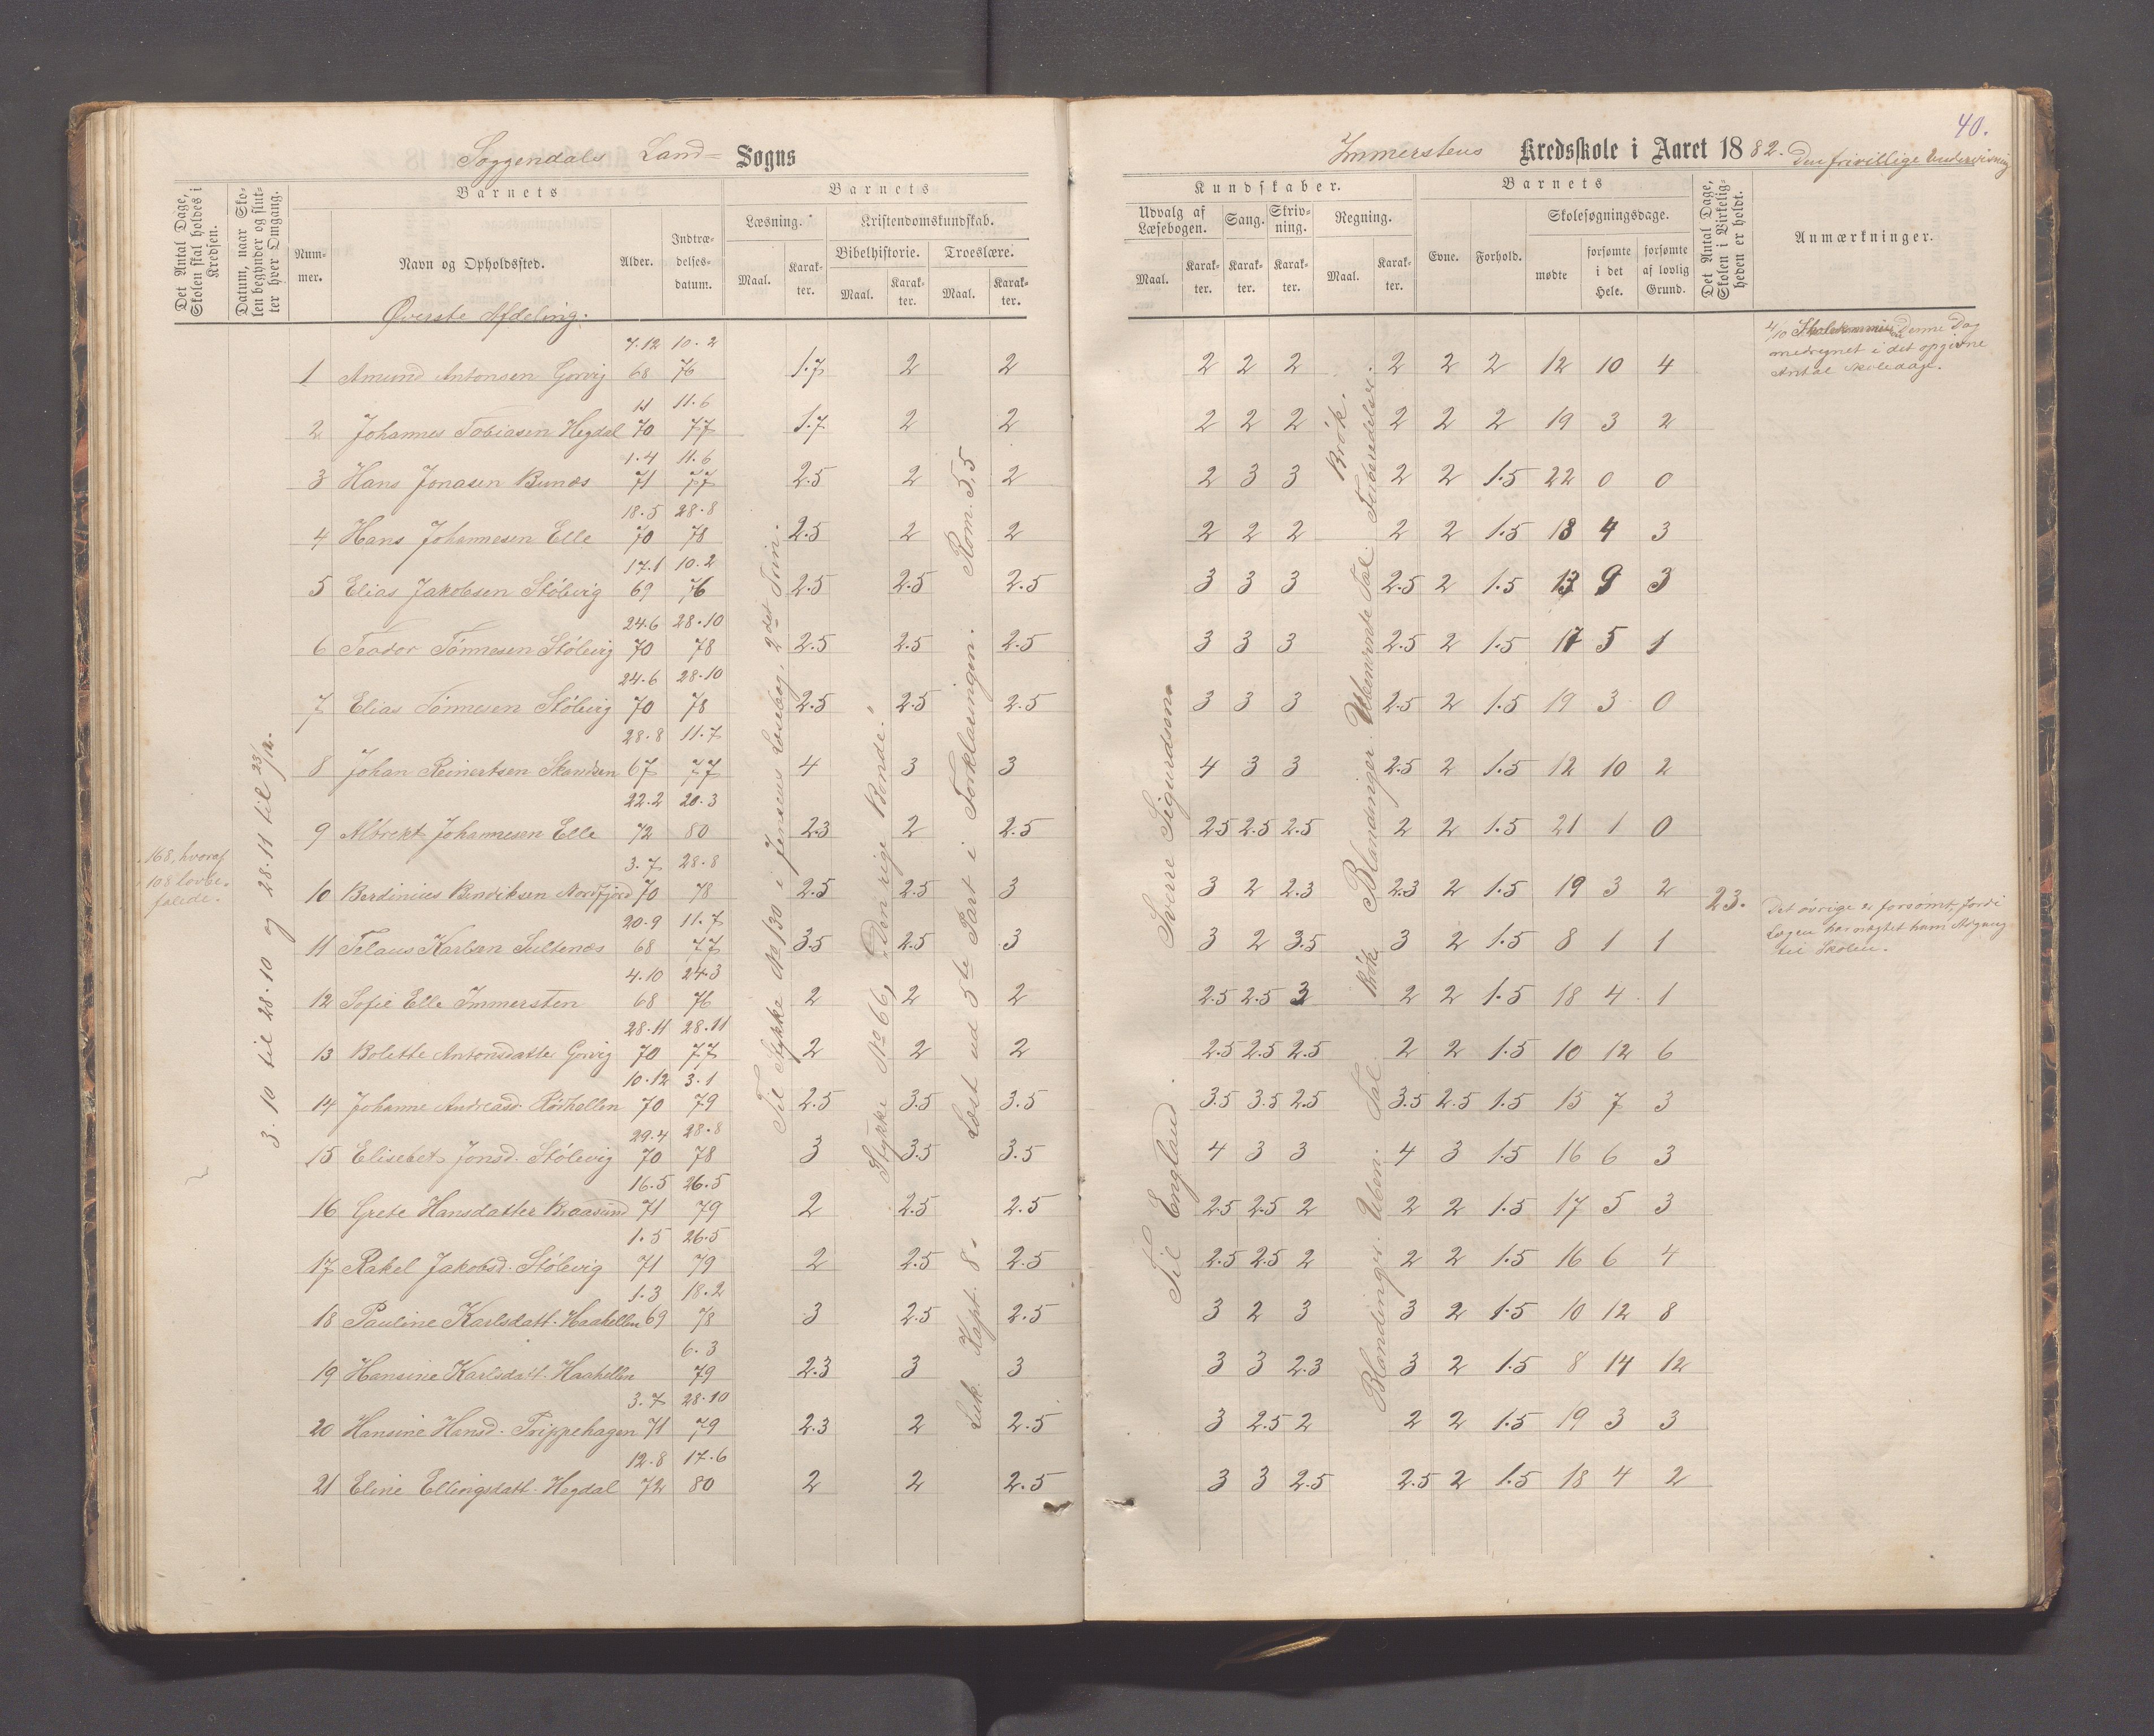 40.
Soggendals Land= Sogns
Immerstens Kredsskole i Aaret 1882. Den frivillige Undervisning
Det Antal Dage, Skolen skal holdes i Kredsen.
Datum, naar Skolen begynder og slutter hver Omgang.
Barnets
Nummer.
Navn og Opholdssted.
Alder.
Indtrædelsesdatum.
Barnets
Læsning.
Maal.
Karakter.
Kristendomskundskab.
Bibelhistorie.
Maal.
Karakter.
Troeslære.
Maal.
Karakter.
Kundskaber.
Udvalg af Læsebogen.
Maal.
Karakter.
Sang.
Karakter.
Skrivning.
Karakter.
Regning.
Maal.
Karakter.
Barnets
Evne.
Forhold.
Skolesøgningsdage.
mødte
forsømte i det Hele.
forsømte af lovlig Grund.
Det Antal Dage, Skolen i Virkeligheden er holdt.
Anmærkninger.
Øverste Afdeling.
7.12 10.2
1 Amund Antonsen Gorvig 68 76 1.7 2 2 2 2 2 2 2 2 12 10 4
11 11.6
2 Johannes Tobiasen Hegdal 70 77 1.7 2 2 2 2 2 2 2 2 19 3 2
1.4 11.6
3 Hans Jonasen Bunæs 71 77 2.5 2 2 2 3 3 2 2 1.5 22 0 0
18.5 28.8
4 Hans Johannesen Elle 70 78 2.5 2 2 2 2 2 2 2 1.5 18 4 3
17.1 10.2
5 Elias Jakobsen Stølevig 69 76 2.5 2.5 2.5 3 3 3 2.5 2 1.5 13 9 3
24.6 28.10
6 Teodor Tønnesen Stølevig 70 78 2.5 2.5 2.5 3 3 3 2.5 2 1.5 17 5 1
24.6 28.10
7 Elias Tønnesen Stølevig 70 78 2.5 2.5 2.5 3 3 3 2.5 2 1.5 19 3 0
28.8 11.7
8 Johan Reinertsen Skandsen 67 77 4 3 3 4 3 3 2.5 2 1.5 12 10 2
22.2 20.3
9 Albrekt Johannesen Elle 72 80 2.3 2 2.5 2.5 2.5 2.5 2 2 1.5 21 1 0
3.7 28.8
10 Berdinius Bendiksen Nordfjord 70 78 2.5 2.5 3 3 2 2.3 2.3 2 1.5 19 3 2
20.9 11.7
11 Telaus Karlsen Sultenæs 68 77 3.5 2.5 3 3 2 3.5 3 2 1.5 8 1 1
4.10 24.3
12 Sofie Elle Immersten 68 76 2 2 2 2.5 2.5 3 2 2 1.5 18 4 1
28.11 28.11
13 Bolette Antonsdatter Gorvig 70 77 2 2 2 2.5 2.5 2.5 2 2 1.5 10 12 6
10.12 3.1
14 Johanne Andreasd. Rødhellen 70 79 2.5 3.5 3.5 3.5 3.5 2.5 3.5 2.5 1.5 15 7 3
29.4 28.8
15 Elisebet Jonsd. Stølevig 70 78 3 3.5 3.5 4 3 3 4 3 1.5 16 6 3
16.5 26.5
16 Grete Hansdatter Braasund 71 79 2 2.5 2.5 2.5 2.5 2 2 2 1.5 17 5 3
1.5 26.5
17 Rakel Jakobsd. Stølevig 71 79 2 2.5 2.5 2.5 2.5 2 2 2 1.5 16 6 4
1.3 18.2
18 Pauline Karlsdatt. Haahellen 69 78 3 2.5 2.5 3 2 3 3 2 1.5 10 12 8
6.3
19 Hansine Karlsdatt. Haahellen 79 2.3 3 3 3 3 2.3 3 2 1.5 8 14 12
3.7 28.10
20 Hansine Hansd. Trippehagen 71 79 2.3 2 2.5 3 2.5 2 2 2 1.5 19 3 3
12.8 17.6
21 Eline Ellingsdatt. Hegdal 72 80 2 2 2.5 3 3 2.5 2.5 2 1.5 18 4 2
168, hvoraf
108 lovbe-
falede.
3.10 til 28.10 og 28.11 til 23/12.
Til Stykke No 130 i Jensens Læsebog, 2det Trin.
Stykke No 66, "Den rige Bonde."
Luk. Kapt. 8. Læst ud 5te Part i Forklaringen. Rom. 5,5
Til England. Sverre Sigurdsen
Blandinger. Uben. Tal. Brøk Blandinger. Ubenævnte Tal. Tidsberedelser. Brøk.
23.
4/10 Skolekommission Denne Dag
medregnet i det opgivne
Antal Skoledage.
Det øvrige er forsømt, fordi
Lægen har nægtet ham Adgang
til Skolen.